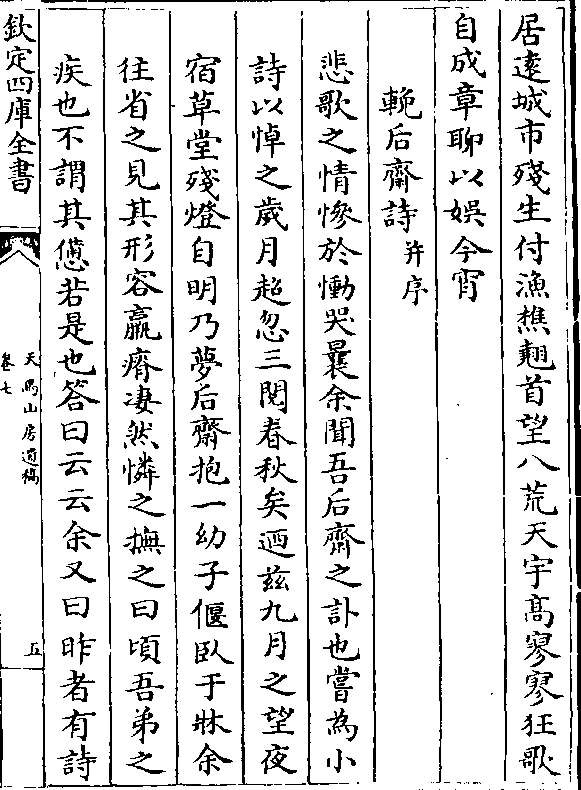 居逺城市殘生付漁樵翹首望八荒天宇髙寥寥狂歌
自成章聊以娯今宵
輓后齋詩并序
悲歌之情慘於慟哭曩余聞吾后齋之訃也嘗為小
詩以悼之歲月超忽三閱春秋矣廼兹九月之望夜
宿草堂殘燈自明乃夢后齋抱一幼子偃臥于牀余
往省之見其形容羸瘠凄然憐之撫之曰頃吾弟之
疾也不謂其憊若是也答曰云云余又曰昨者有詩
欽定四庫全書
天馬山房遺稿
卷七
五